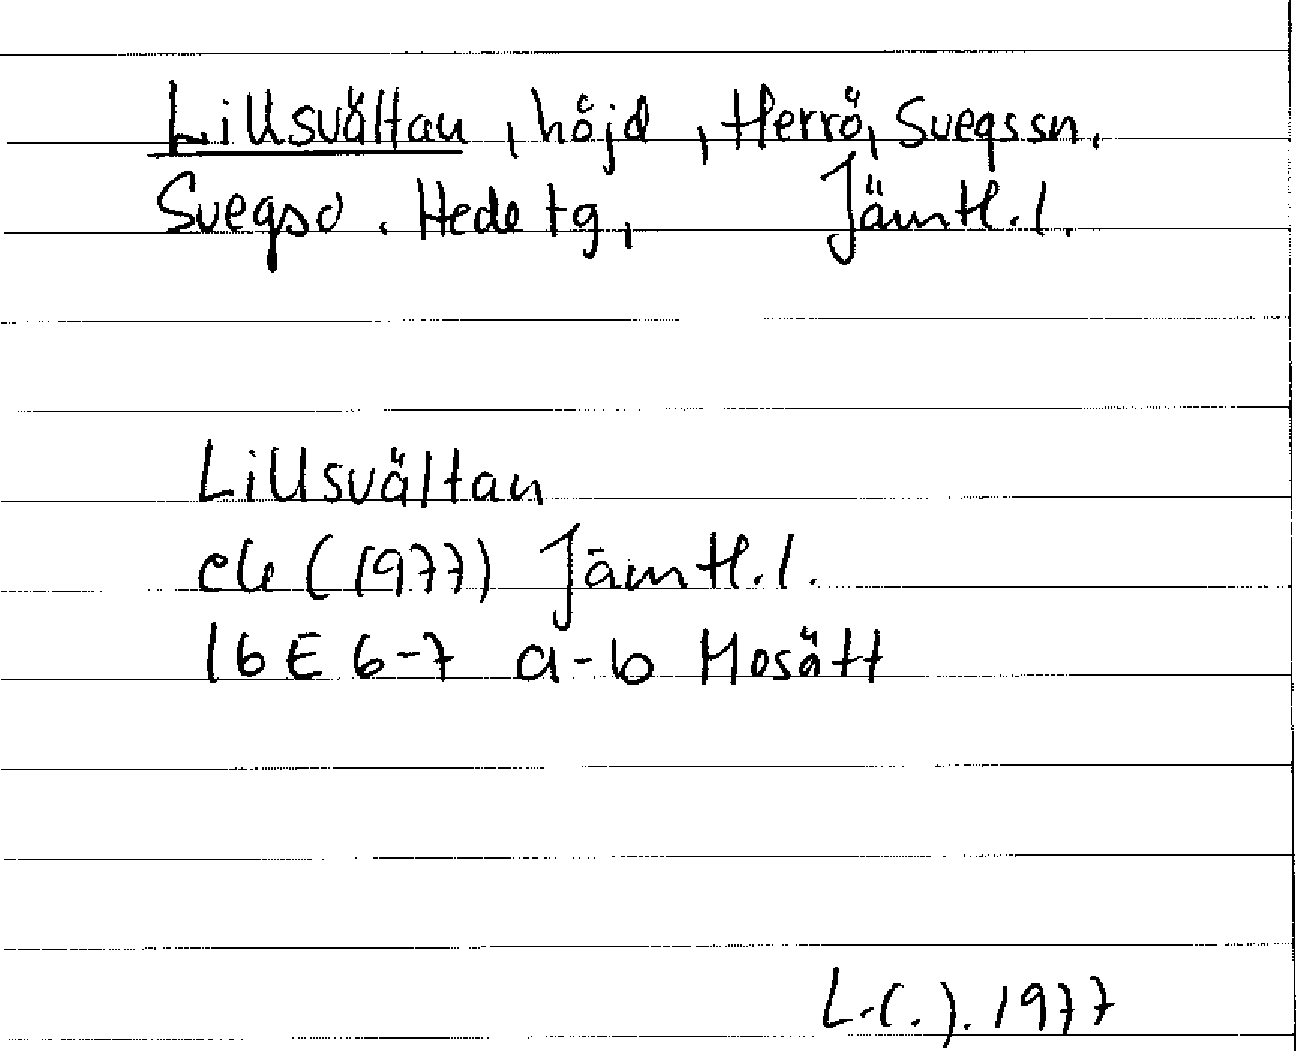 Lillsvältan, höjd, Herrö, Svegs sn.
Svegs d. Hede tg, Jämtl. l.
Lillsvältan
ek (1977) Jämtl. l.
16 E 6-7 a-b Mosätt
1977